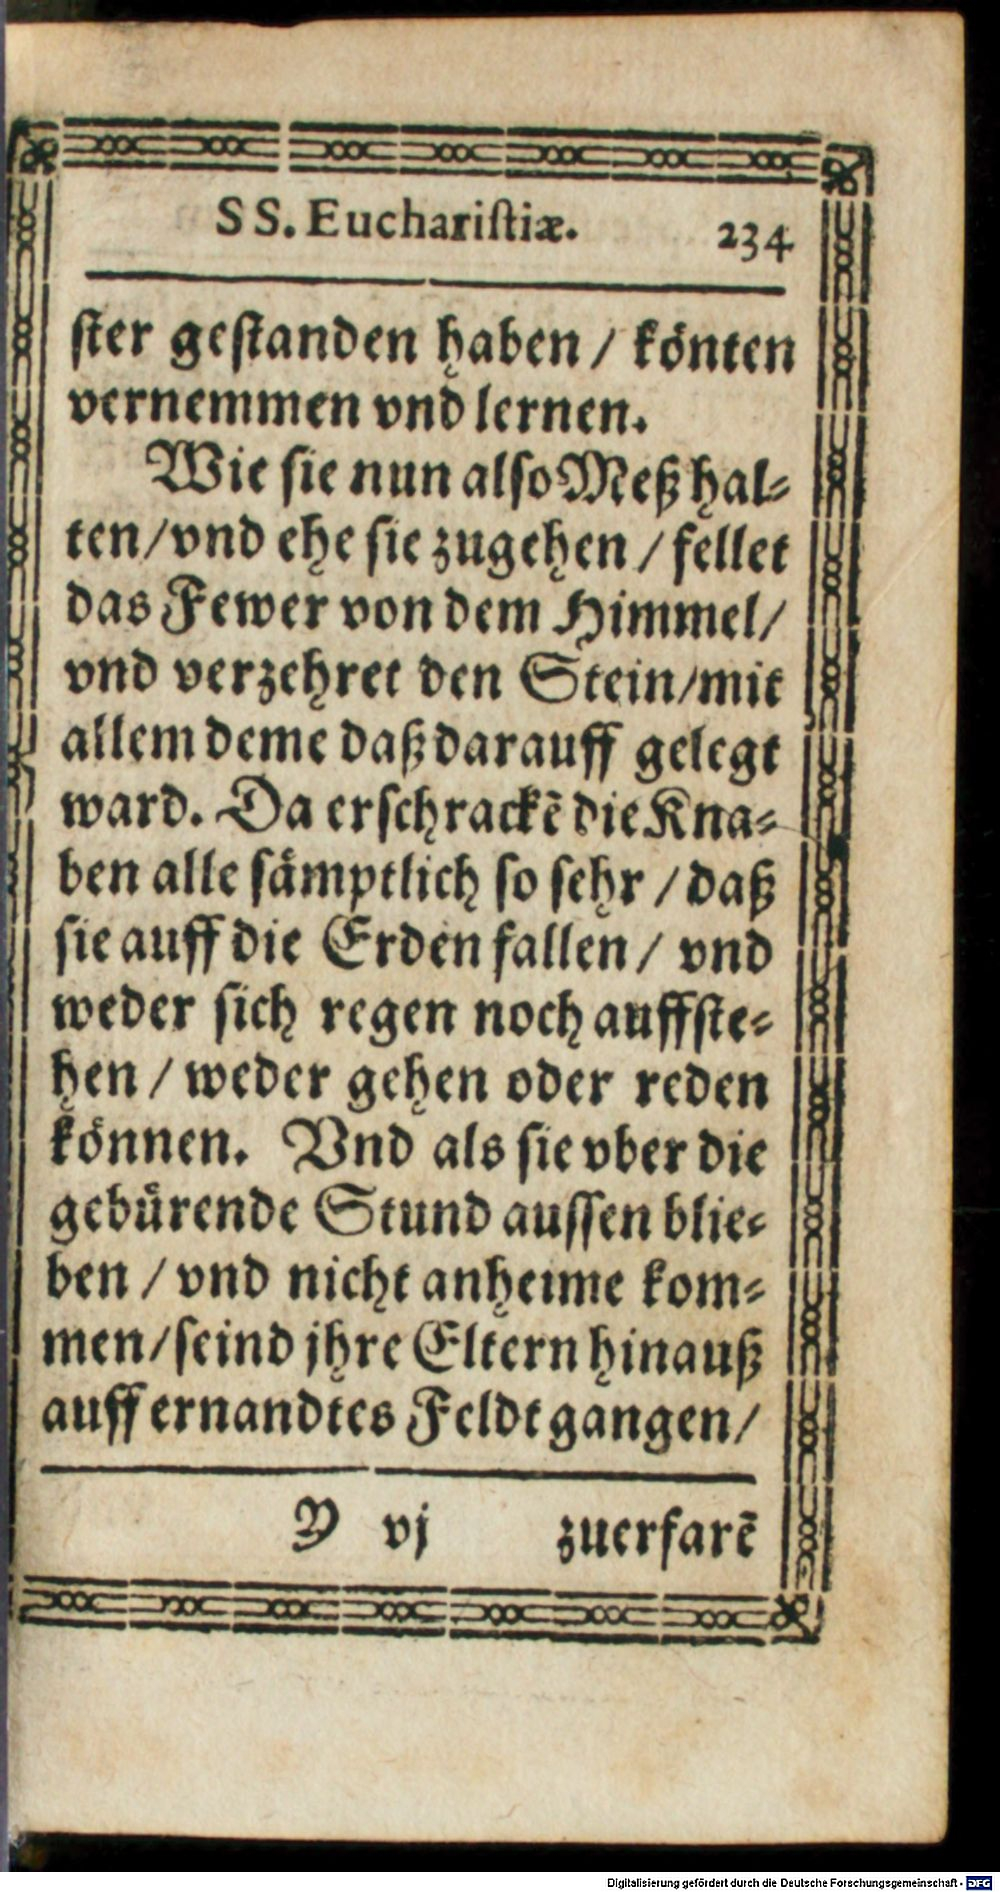 SS. Euchariſtiæ. 234
ſter geſtanden haben / könten
vernemmen vnd lernen.
Wie ſie nun alſo Meß hal⸗
ten/vnd ehe ſie zugehen / fellet
das Fewer von dem Himmel/
vnd verzehret den Stein/mit
allem deme daß darauff gelegt
ward. Da erſchrackē die Kna⸗
ben alle ſämptlich ſo ſehr / daß
ſie auff die Erden fallen / vnd
weder ſich regen noch auffſte⸗
hen / weder gehen oder reden
können. Vnd als ſie vber die
gebürende Stund auſſen blie⸗
ben / vnd nicht anheime kom⸗
men/ſeind jhre Eltern hinauß
auff ernandtes Feldt gangen/
Y vj zuerfarē
Digitalisierung gefördert durch die Deutsche Forschungsgemeinschaft - DFG